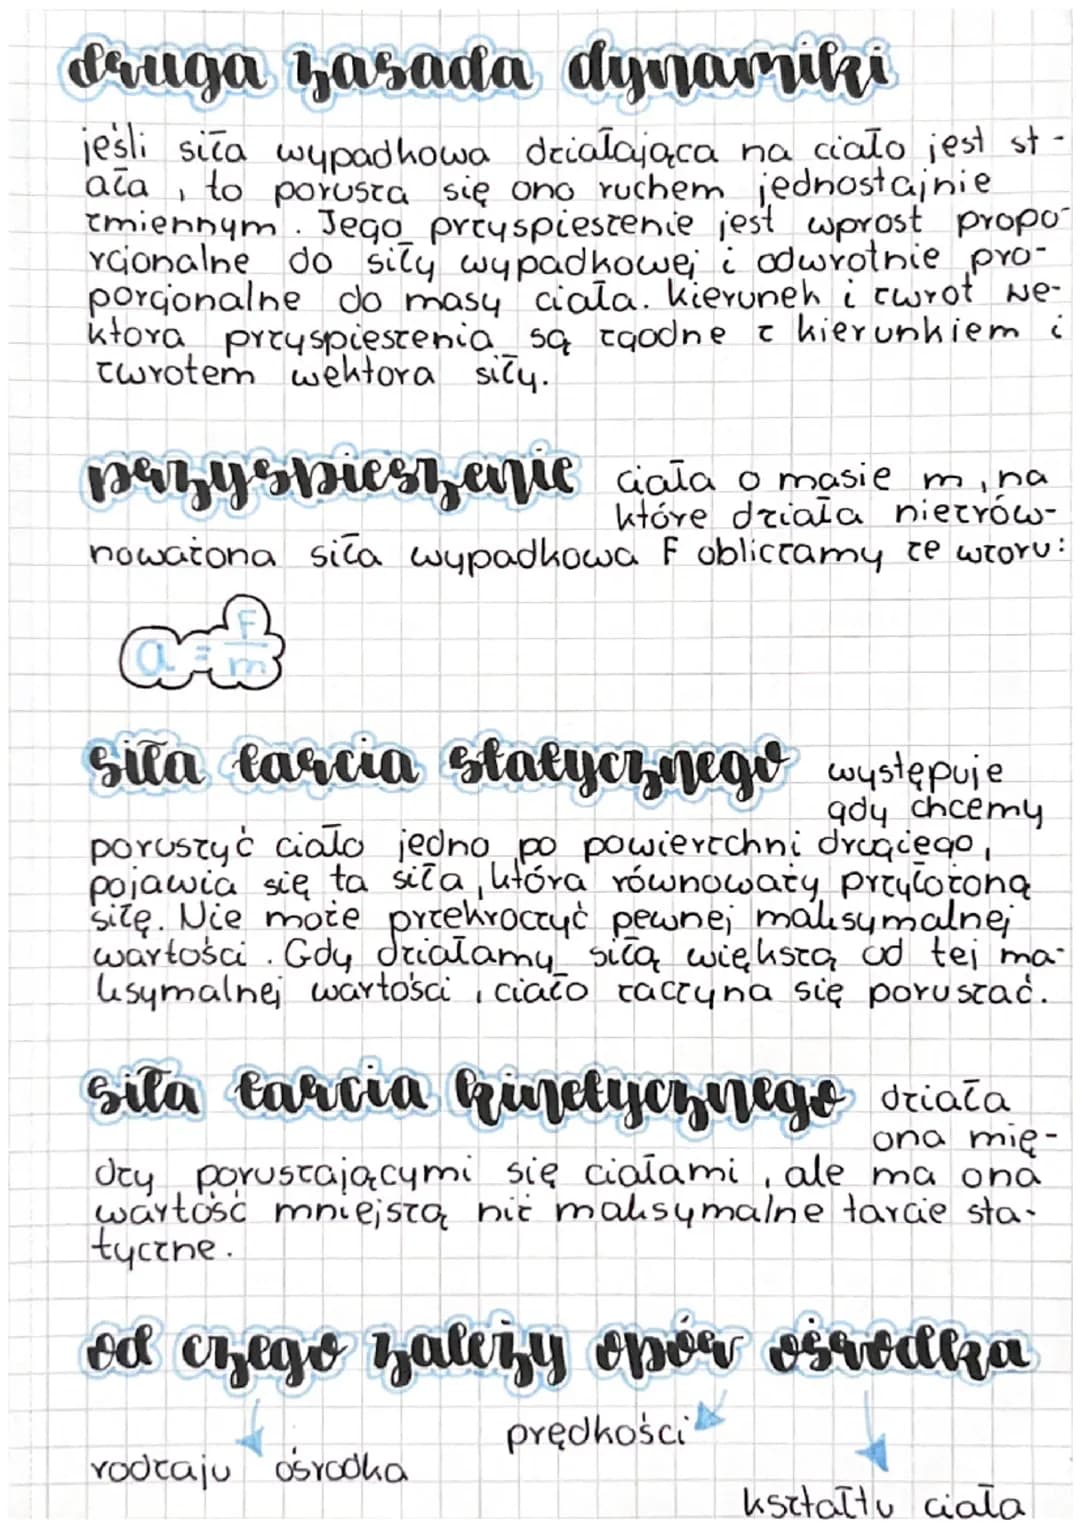 druga zasada dynamiki
jeśli siła wypadkowa działająca na ciało jest st-
ała, to porusza się ono ruchem jednostajnie
zmiennym. Jego przyspieszenie jest wprost propo-
rcjonalne do siły wypadkowej i odwrotnie pro-
porcjonalne do masy ciała. kierunek i zwrot we-
ktora przyspieszenia są zgodne z kierunkiem i
zwrotem wektora siły.
przyspieszenie ciała o masie m, na
które działa niezrów-
noważona siła wypadkowa F obliczamy ze wzoru:
a = F/m
siła tarcia statycznego występuje
gdy chcemy
poruszyć ciało jedno po powierzchni drugiego,
pojawia się ta siła, która równoważy przyłożoną
siłę. Nie może przekroczyć pewnej maksymalnej
wartości. Gdy działamy siłą większą od tej ma-
ksymalnej wartości, ciało zaczyna się poruszać.
siła tarcia kinetycznego działa
ona mię-
dzy poruszającymi się ciałami, ale ma ona
wartość mniejszą niż maksymalne tarcie sta-
tyczne.
od czego zależy opór ośrodka
prędkości
rodzaju ośrodka
kształtu ciała